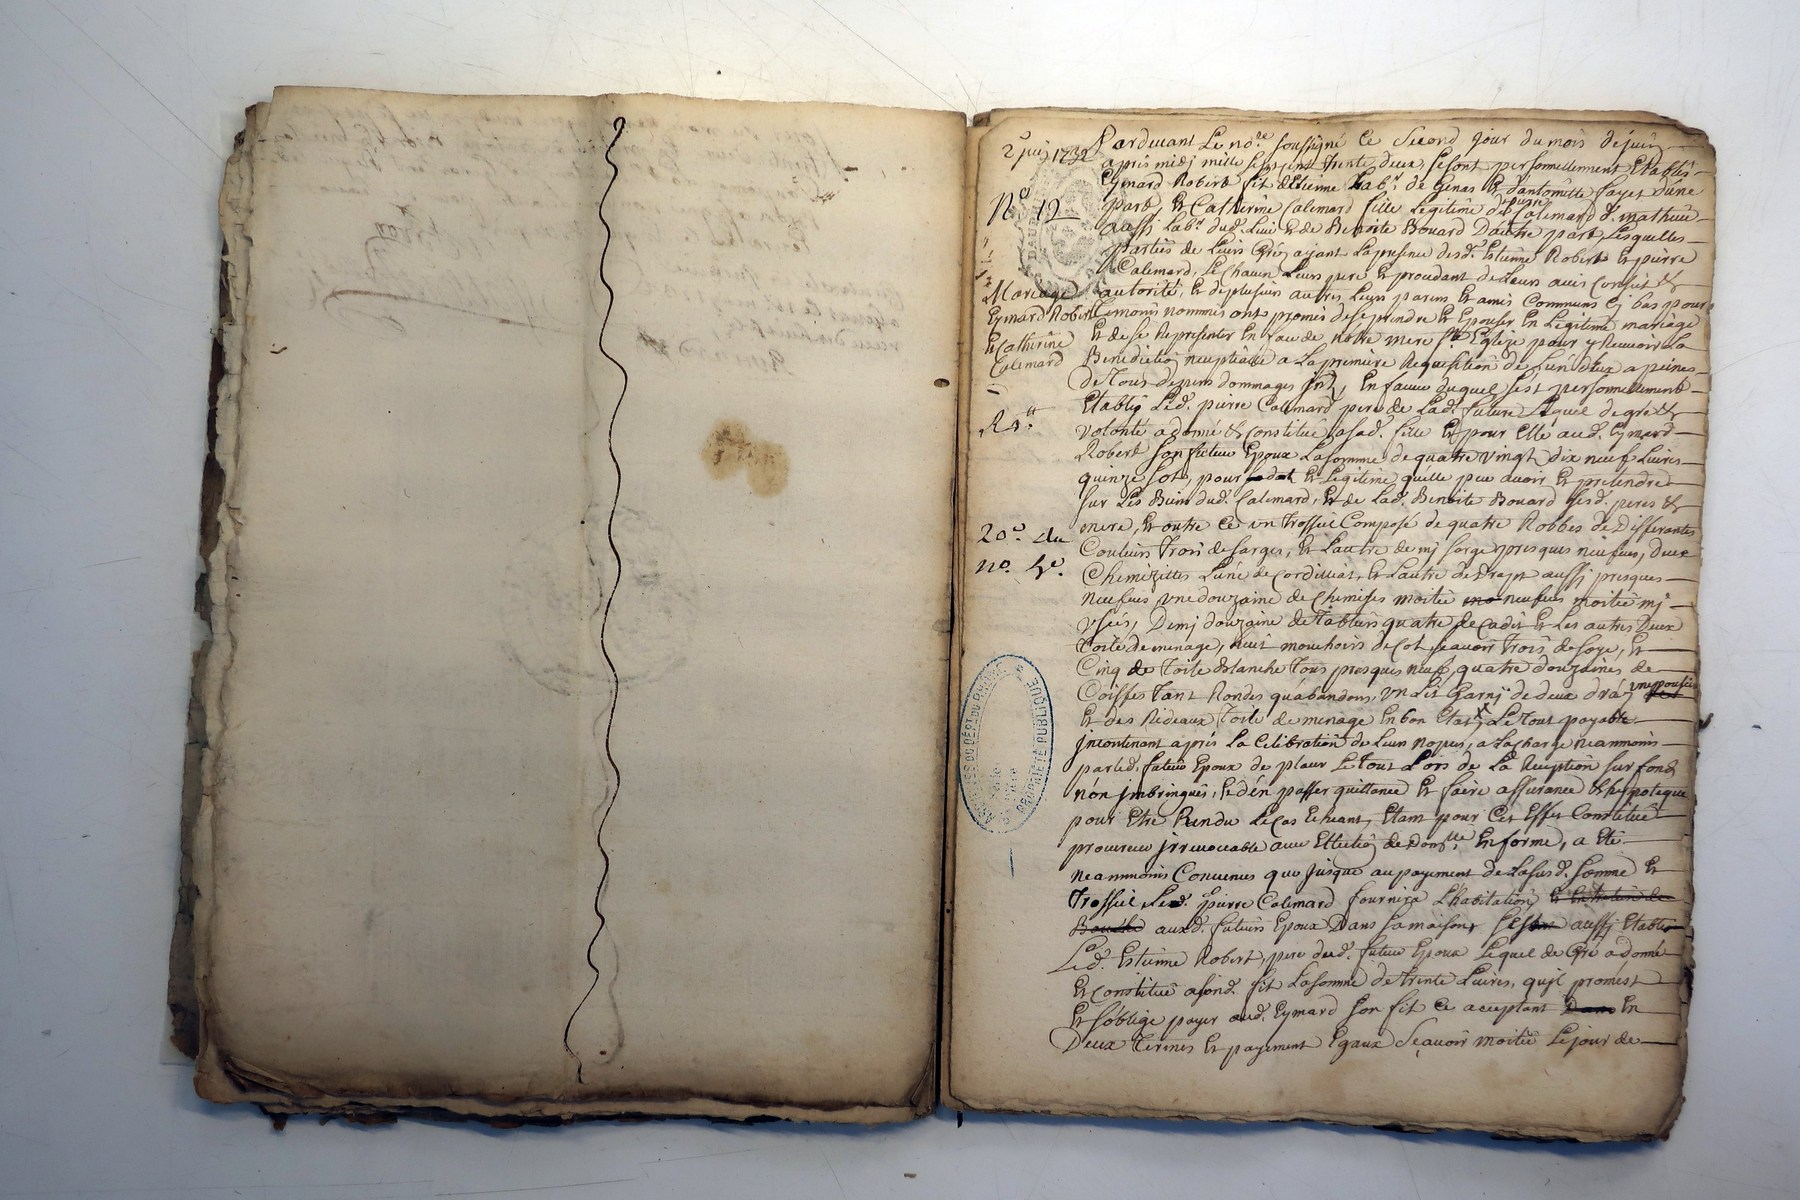 2 juin 1732
Pardevant Le no.re soussigné ce second jour du mois de juin
apres midi mille sept cent trente deux, se sont personnellement Etablis
Eymard Robert fils d'Etienne Lab.r de Genas Et d'antoinette fayet d'une
N.o 19
part, Et Catherine Calemard fille Legitime de pierre Calemard &
aussi Lab.r dud. Lieu Et de Benoite Bouard D'autre part, Lesquelles
parties de Leurs Grés ayant La presence desd. Estienne Robert Et pierre
Calemard, Le Chacun Leurs pere Et procedant de Leurs avis conseil &
Mariage
autorité, Et de plusieurs autres Leurs parens Et amis Communs cy bas pour
Eymard Robert
temoins nommés ont promis de se prendre Et Epouser En Legitime mariage
Et Catherine
Et de se Representer En face de notre mere s.te Eglize pour y Recevoir La
Calemard
Benediction nuptialle a La premiere Requisition de L'un d'eux a peines
de Tous depens dommages Int, En faveur duquel s'est personnellement
Etably Led. pierre Calemard pere de Lad. future Lequel de gré &
volonté a donné & constitué a sad. fille Et pour Elle aud. Eymard
Robert son futur Epoux La somme de quatre vingt dix neuf Livres
quinze sols, pour dot Et Legitime qu'elle peut avoir Et pretendre
sur Les Biens dud. Calemard, Et de Lad. Benoite Bouard sesd. peres &
mere, Et outre ce un trossel Composé de quatre Robbes de Differantes
20.e du
Couleurs Trois de sarges, Et L'autre de mi sarge presques neufves, deux
n.o 4.e
Chemizettes L'une de Cordilliat, Et L'autre de drapt aussi presques
neufves une douzaine de Chemises moitié neufves moitié mi
Usées, Demi douzaine de tabliers quatre de cadis Et Les autres Deux
Toile de menage, huit mouchoirs de Col sçavoir Trois de soye, Et
Cinq de Toile Blanche Tous presques neufs, quatre douzaines de
Coiffes Tant Rondes qu'abandons, Un Lit Garni de deux dras
Et des Rideaux Toile de menage En bon Etat, Le Tout payable
incontinant aprés La Celebration de Leurs nopces, a La charge neanmoins
par Led. futur Epoux de placer Le Tout Lors de La Reception sur fonds
non imbringués, Et d'en passer quittance Et faire assurance & hypoteque
pour Etre Rendu Le cas Echeant, Etant pour Cet Effet Constitué
procureur irrevocable avec Ellection de dom.lle En forme, a Eté
neanmoins Convenus que jusque au payement de La susd. somme Et
Trossel Led. pierre Calemard fournira L'habitation Et Entretien de
Bouche aux d. futurs Epoux Dans sa maison, s'est aussi Etabli
Led. Estienne Robert, pere dud. futur Epoux Lequel de Gré a donné
Et Constitué a sond. fils La somme de trente Livres, qu'il promest
Et s'oblige payer aud. Eymard son fils ce aceptant En
Deux Termes Et payement Egaux Sçavoir moitié Le jour de
ARCHIVES DU DÉPT. DU RHÔNE
PROPRIÉTÉ PUBLIQUE